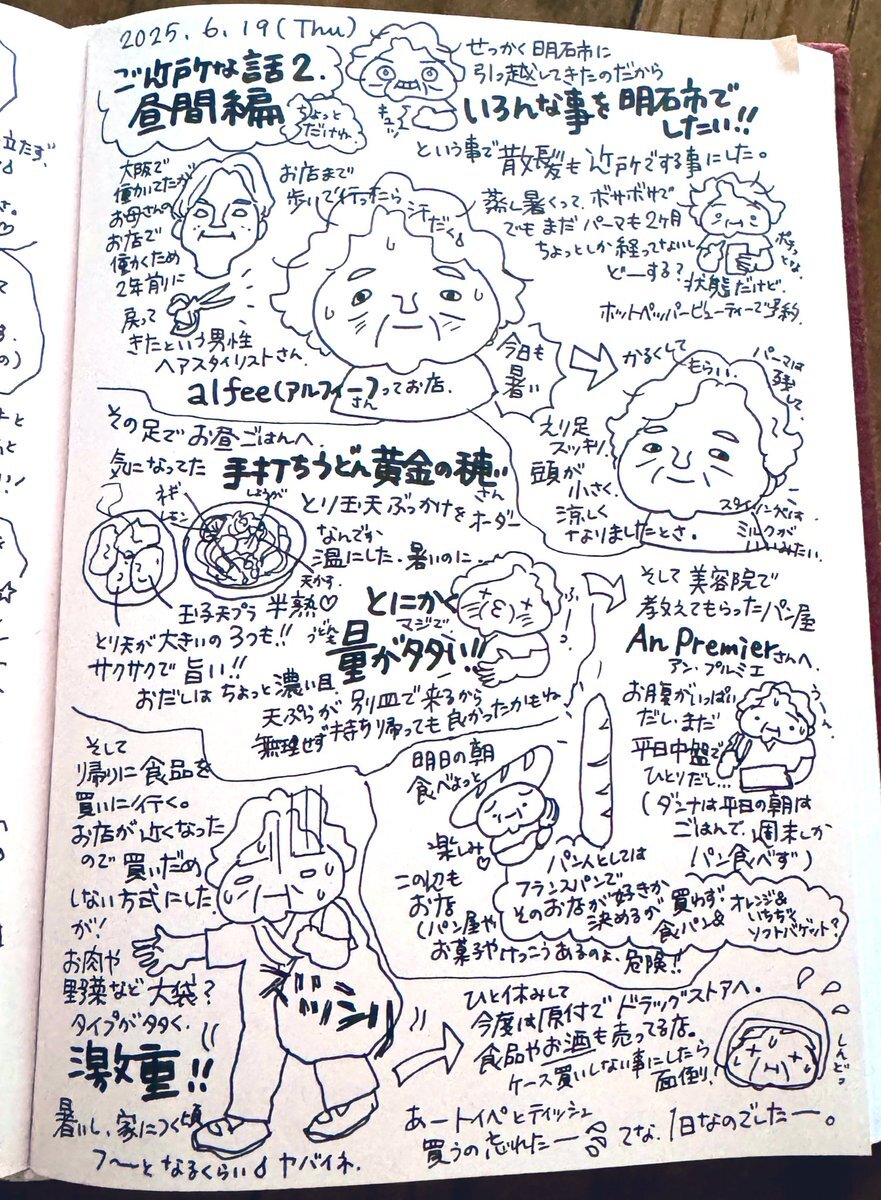 2025.6.19(Thu)
ご近所な話2.
昼間編
ちょっと
だけね
せっかく明石市に
引っ越してきたのだから
いろんな事を明石市で
したい!!
という事で散髪も近所でする事にした。
大阪で
働いてたが
お母さんの
お店で
働くため
2年前に
戻って
きたという男性
ヘアスタイリストさん。
お店まで
歩いて行ったら
汗だく
蒸し暑くって、ボサボサで
でもまだパーマも2ヶ月
ちょっとしか経ってないし
どーする?
状態だけど、
ホットペッパービューティーで予約
alfee(アルフィー)さんってお店.
今日も
暑い
かるくして
もらい、
パーマは
残して、
えり足
スッキリ、
頭が
小さく、
涼しく
なりましたとさ。
スタイリング剤は
ミルクが
いいみたい。
その足でお昼ごはんへ
気になってた手打ちうどん黄金の穂さん
とり玉天ぶっかけをオーダー
ネギ
レモン
しょうが
天かす
なんでか
温にした、暑いのに、
玉子天プラ半熟♡
とり天が大きいの3つも!!
サクサクで旨い!!
とにかく
うどんも
マジで
量がタタい!!
ふーっ
おだしはちょっと濃い目、
天ぷらが別皿で来るから
無理せず持ち帰っても良かったかもね
そして美容院で
教えてもらったパン屋
An Premierさんへ
アン・プルミエ
お腹がいっぱい
だし、まだ
平日中盤で
ひとりだし…
うーん
(ダンナは平日の朝は
ごはんで、週末しか
パン食べず)
明日の朝
食べよっと
楽しみ♡
この辺も
お店
(パン屋や
お菓子やけっこうあるのよ、危険!!
パン人としては
フランスパンで
そのお店が好きか
決めるが
買わず、
食パン&
オレンジ&
いちぢく
ソフトバゲット?
そして
帰りに食品を
買いに行く。
お店が近くなった
ので買いだめ
しない方式にした
が!
お肉や
野菜など大袋?
タイプがタタく、
激重!!
ズッシリ
暑いし、家につく頃
フ〜となるくらい ヤバイネ。
ひと休みして
今度は原付でドラッグストアへ。
食品やお酒も売ってる店。
ケース買いしない事にしたら
面倒り、
しんどっ
あートイペとティッシュ
買うの忘れたー
てな、1日なのでしたー。